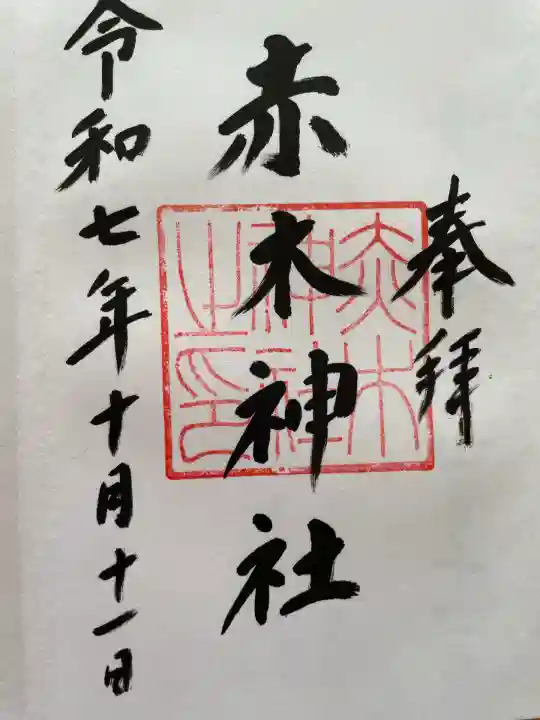 奉拝
赤木神社
赤木神社之印
令和七年十月十一日